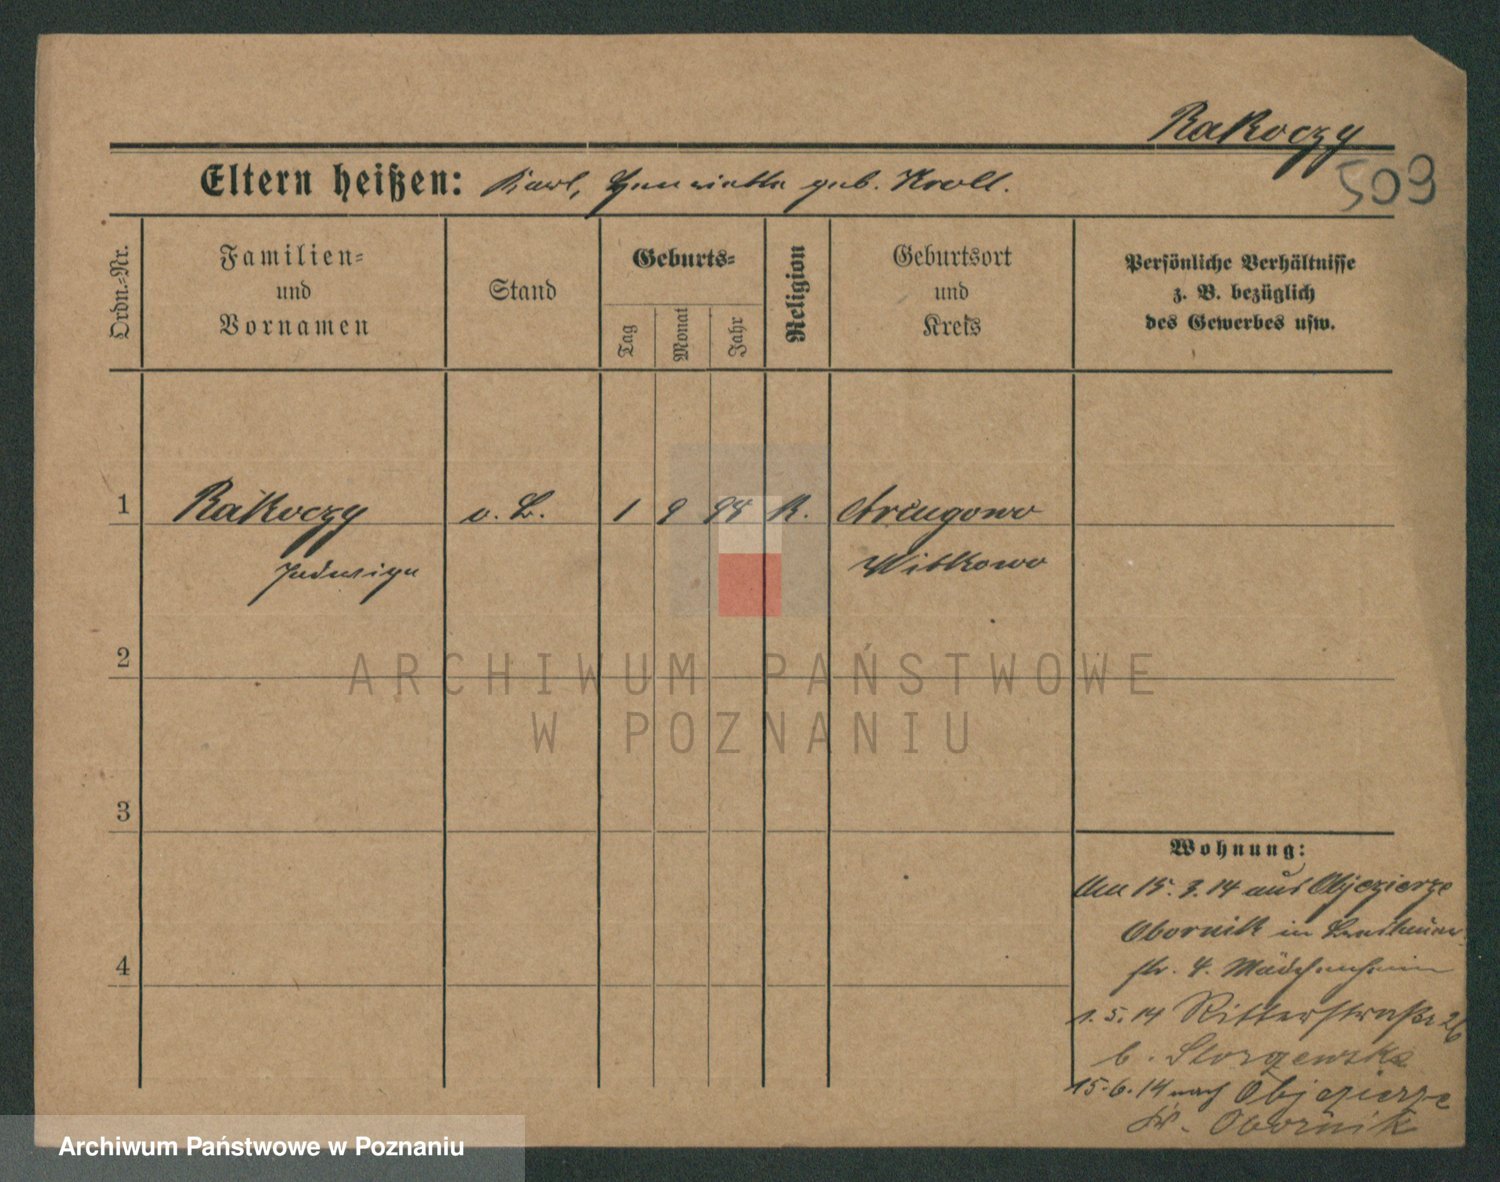 Rakoczy
509
Eltern heißen: Karl, Henriette geb. Kroll.
Ordn.-Nr.
Familien-
und
Vornamen
Stand
Geburts-
Tag
Monat
Jahr
Religion
Geburtsort
und
Kreis
Persönliche Verhältnisse
z. B. bezüglich
des Gewerbes usw.
1 Rakoczy o. B. 1 9 98 K. Arcugowo
Jadwiga Witkowo
2
3
4
Wohnung:
15. 3. 14 aus Objezierze
Obornik in
str. 4. Mädchenheim
1. 5. 14 Ritterstraße 26
b.
15. 6. 14 nach Objezierze
Kr. Obornik
ARCHIWUM PAŃSTWOWE
W POZNANIU
Archiwum Państwowe w Poznaniu